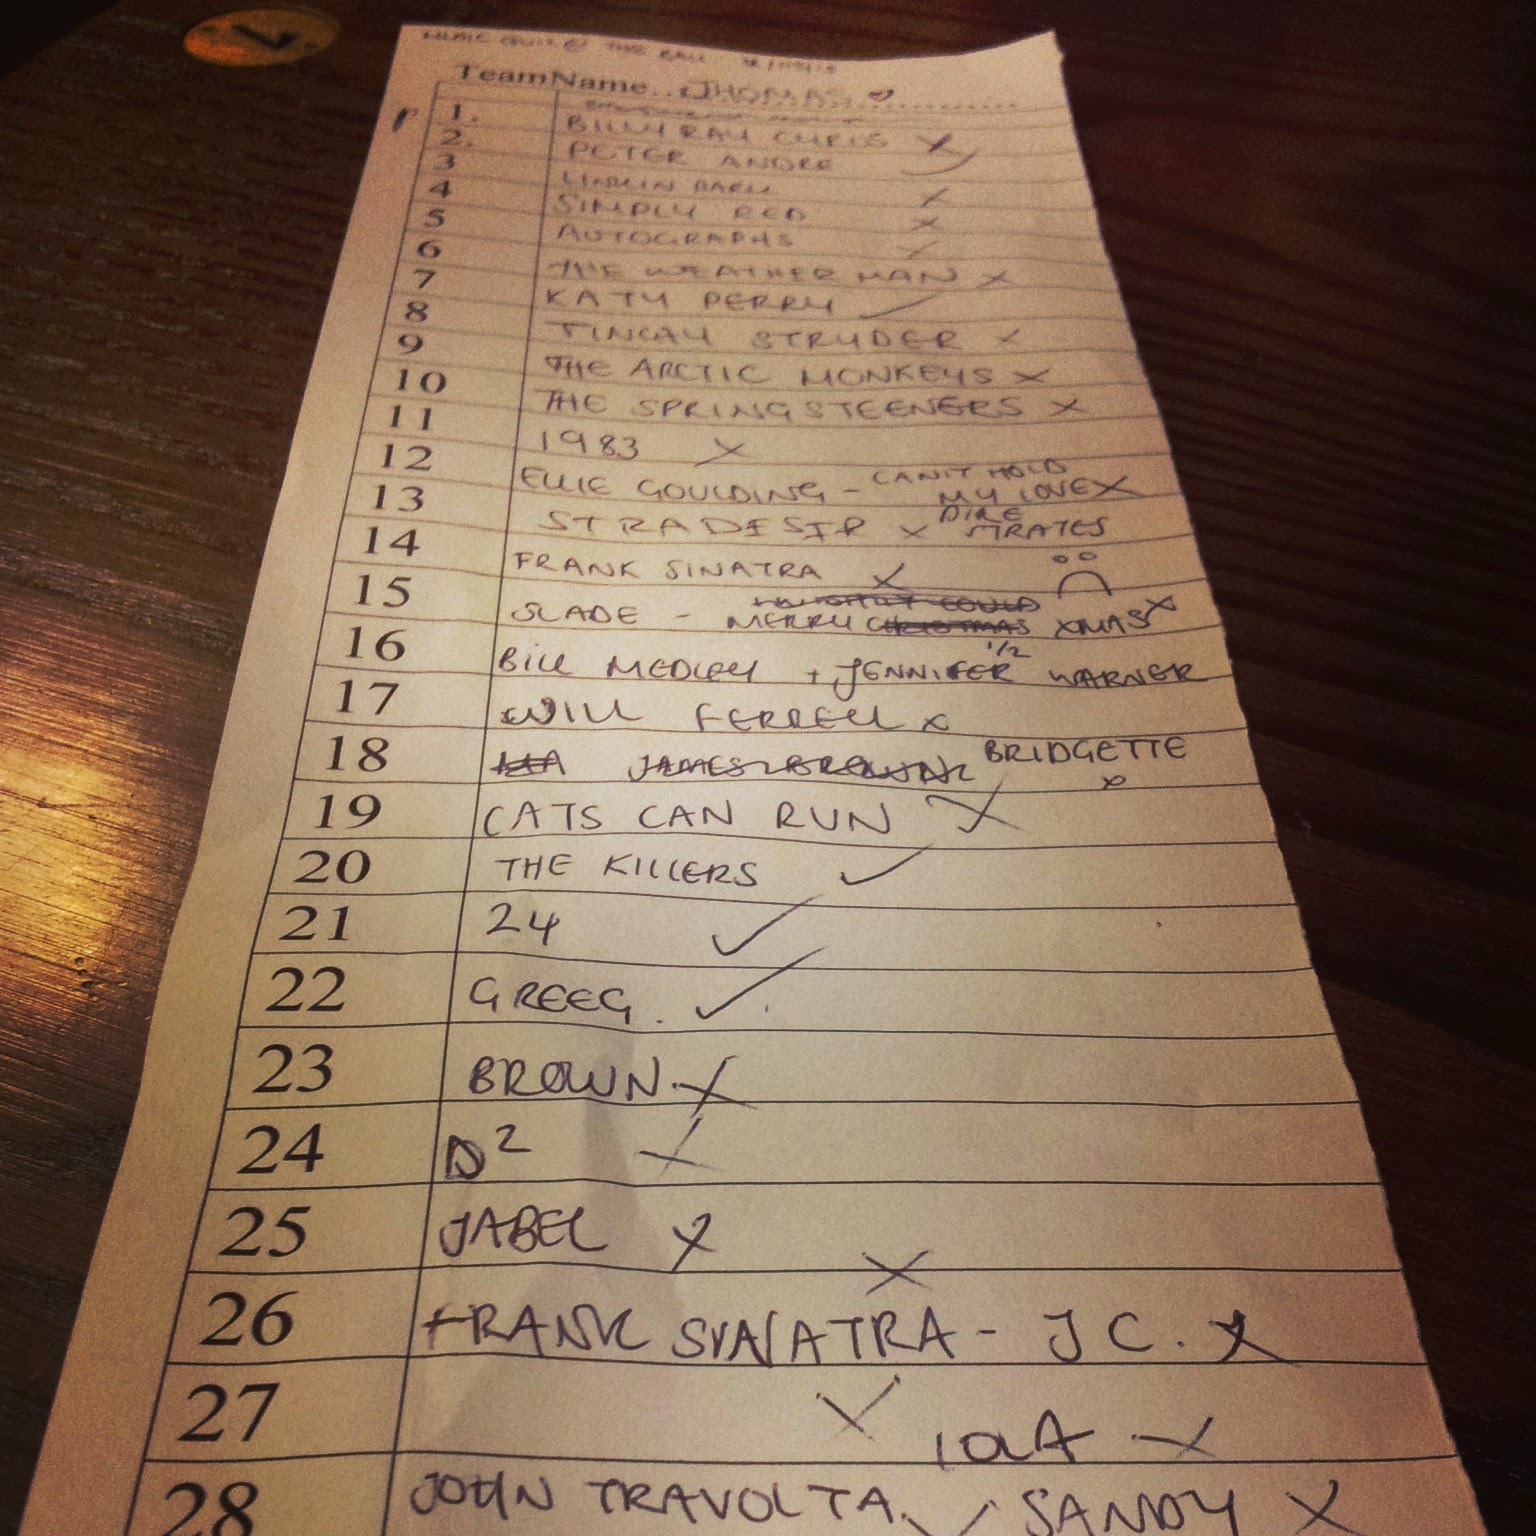 MUSIC QUIZ @ THE BALL
TeamName...JHOMAS
1. BILLY RAY CYRUS X
2. PETER ANDRE ✓
3 LINKIN PARK X
4 SIMPLY RED X
5 AUTOGRAPHS X
6 THE WEATHER MAN X
7 KATY PERRY ✓
8 TINCHY STRYDER X
9 THE ARCTIC MONKEYS X
10 THE SPRINGSTEENERS X
11 1983 X
12 ELLIE GOULDING - CAN'T HOLD MY LOVE X
13 STRADESIR X DIRE STRATES
14 FRANK SINATRA X
15 SLADE - MERRY CHRISTMAS XMAS X
16 BILL MEDLEY + JENNIFER WARNER 1/2
17 WILL FERRELL X
18 JAMES BROWN BRIDGETTE X
19 CATS CAN RUN X
20 THE KILLERS ✓
21 24 ✓
22 GREEG. ✓
23 BROWN. X
24 D² X
25 JABEL X
26 FRANK SINATRA - J C. X X
27 X IOLA X
28 JOHN TRAVOLTA. ✓ SANDY X